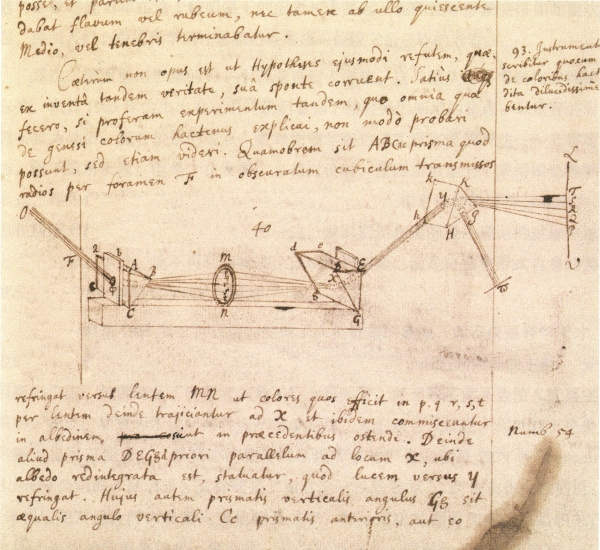 posse, et
dabat flavum vel rubeum, nec tamen ab ullo quiescente
Medio, vel tenebris terminabatur.
Cæterum non opus est ut Hypotheses ejusmodi refutem, quæ,
ex inventâ tandem veritate, suâ sponte corruent. Satius
fecero, si proferam experimentum tandem, quo omnia quæ
de genesi colorum hactenus explicui, non modò probari
possunt, sed etiam videri. Quamobrem sit ABC prisma quod
radios per foramen F in obscuratum cubiculum transmissos
93. Instrument
scribitur quocum
de coloribus hact
dita dilucidissime
bentur.
40
O
F
2
b
A
B
C
M
N
d
e
E
X
G
k
K
h
Y
H
g
refringat versus lentem MN ut colores quos efficit in p, q r, s, t
per lentem deinde trajiciantur ad X et ibidem commisceantur
in albedinem, ut in præcedentibus ostendi. Deinde
aliud prisma DEG priori parallelum ad locum X, ubi
albedo redintegrata est, statuatur, quod lucem versus Y
refringat. Hujus autem prismatis verticalis angulus Gg sit
æqualis angulo verticali Cc prismatis anterioris, aut eo
Numb 54